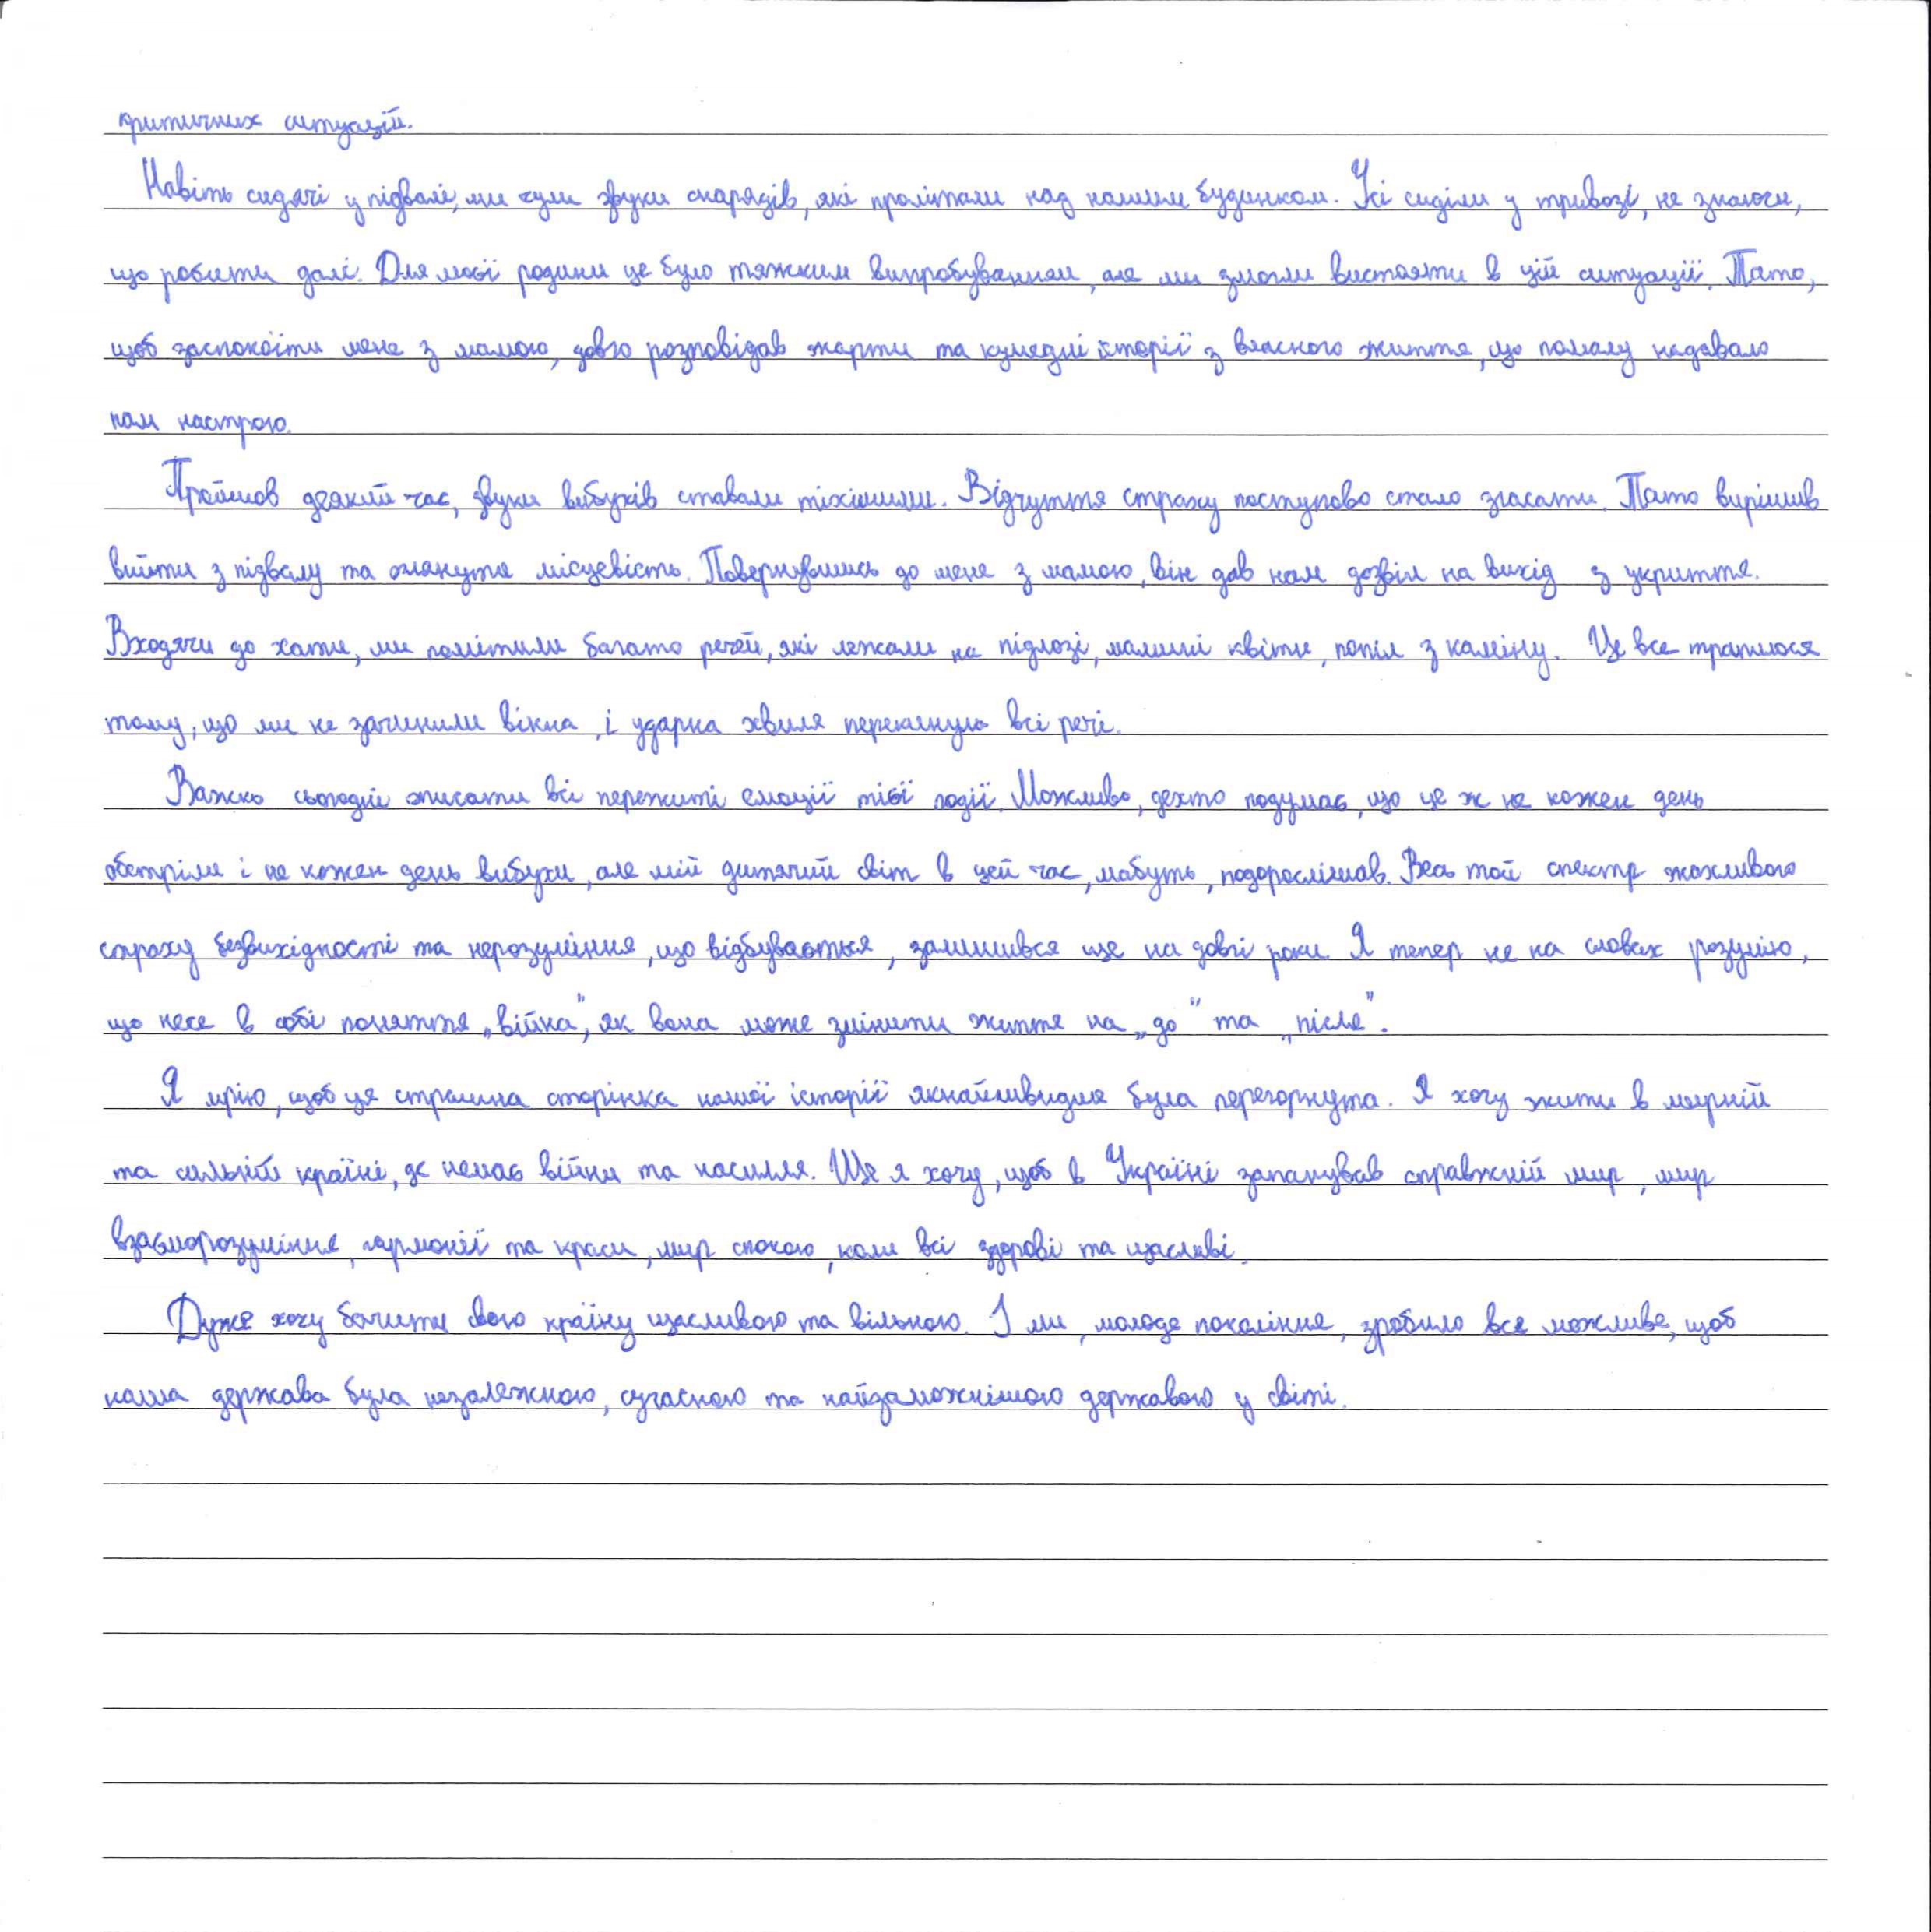 критичних ситуацій.
Навіть сидячі у підвалі, ми чули звуки снарядів, які пролітали над нашим будинком. Усі сиділи у тривозі, не знаючи,
що робити далі. Для моєї родини це було тяжким випробуванням, але ми змогли вистояти в цій ситуації. Тато,
щоб заспокоїти мене з мамою, довго розповідав жарти та кумедні історії з власного життя, що помалу надавало
нам настрою.
Пройшов деякий час, звуки вибухів ставали тіхішими. Відчуття страху поступово стало згасати. Тато вирішив
вийти з підвалу та оглянути місцевість. Повернувшись до мене з мамою, він дав нам дозвіл на вихід з укриття.
Входячи до хати, ми помітили багато речей, які лежали на підлозі, мамині квіти, попіл з каміну. Це все трапилося
тому, що ми не зачинили вікна, і ударна хвиля перекинула всі речі.
Важко сьогодні описати всі пережиті емоції тієї події. Можливо, дехто подумає, що це ж не кожен день
обстріли і не кожен день вибухи, але мій дитячий світ в цей час, мабуть, подорослішав. Весь той спектр жахливого
страху безвихідності та нерозуміння, що відбувається, залишився ще на довгі роки. Я тепер не на словах розумію,
що несе в собі поняття „війна”, як вона може змінити життя на „до” та „після”.
Я мрію, щоб ця страшна сторінка нашої історії якнайшвидше була перегорнута. Я хочу жити в мирній
та сильній країні, де немає війни та насилля. Ще я хочу, щоб в Україні запанував справжній мир, мир
взаєморозуміння, гармонії та краси, мир спокою, коли всі здорові та щасливі.
Дуже хочу бачити свою країну щасливою та вільною. І ми, молоде покоління, зробило все можливе, щоб
наша держава була незалежною, сучасною та найзаможнішою державою у світі.